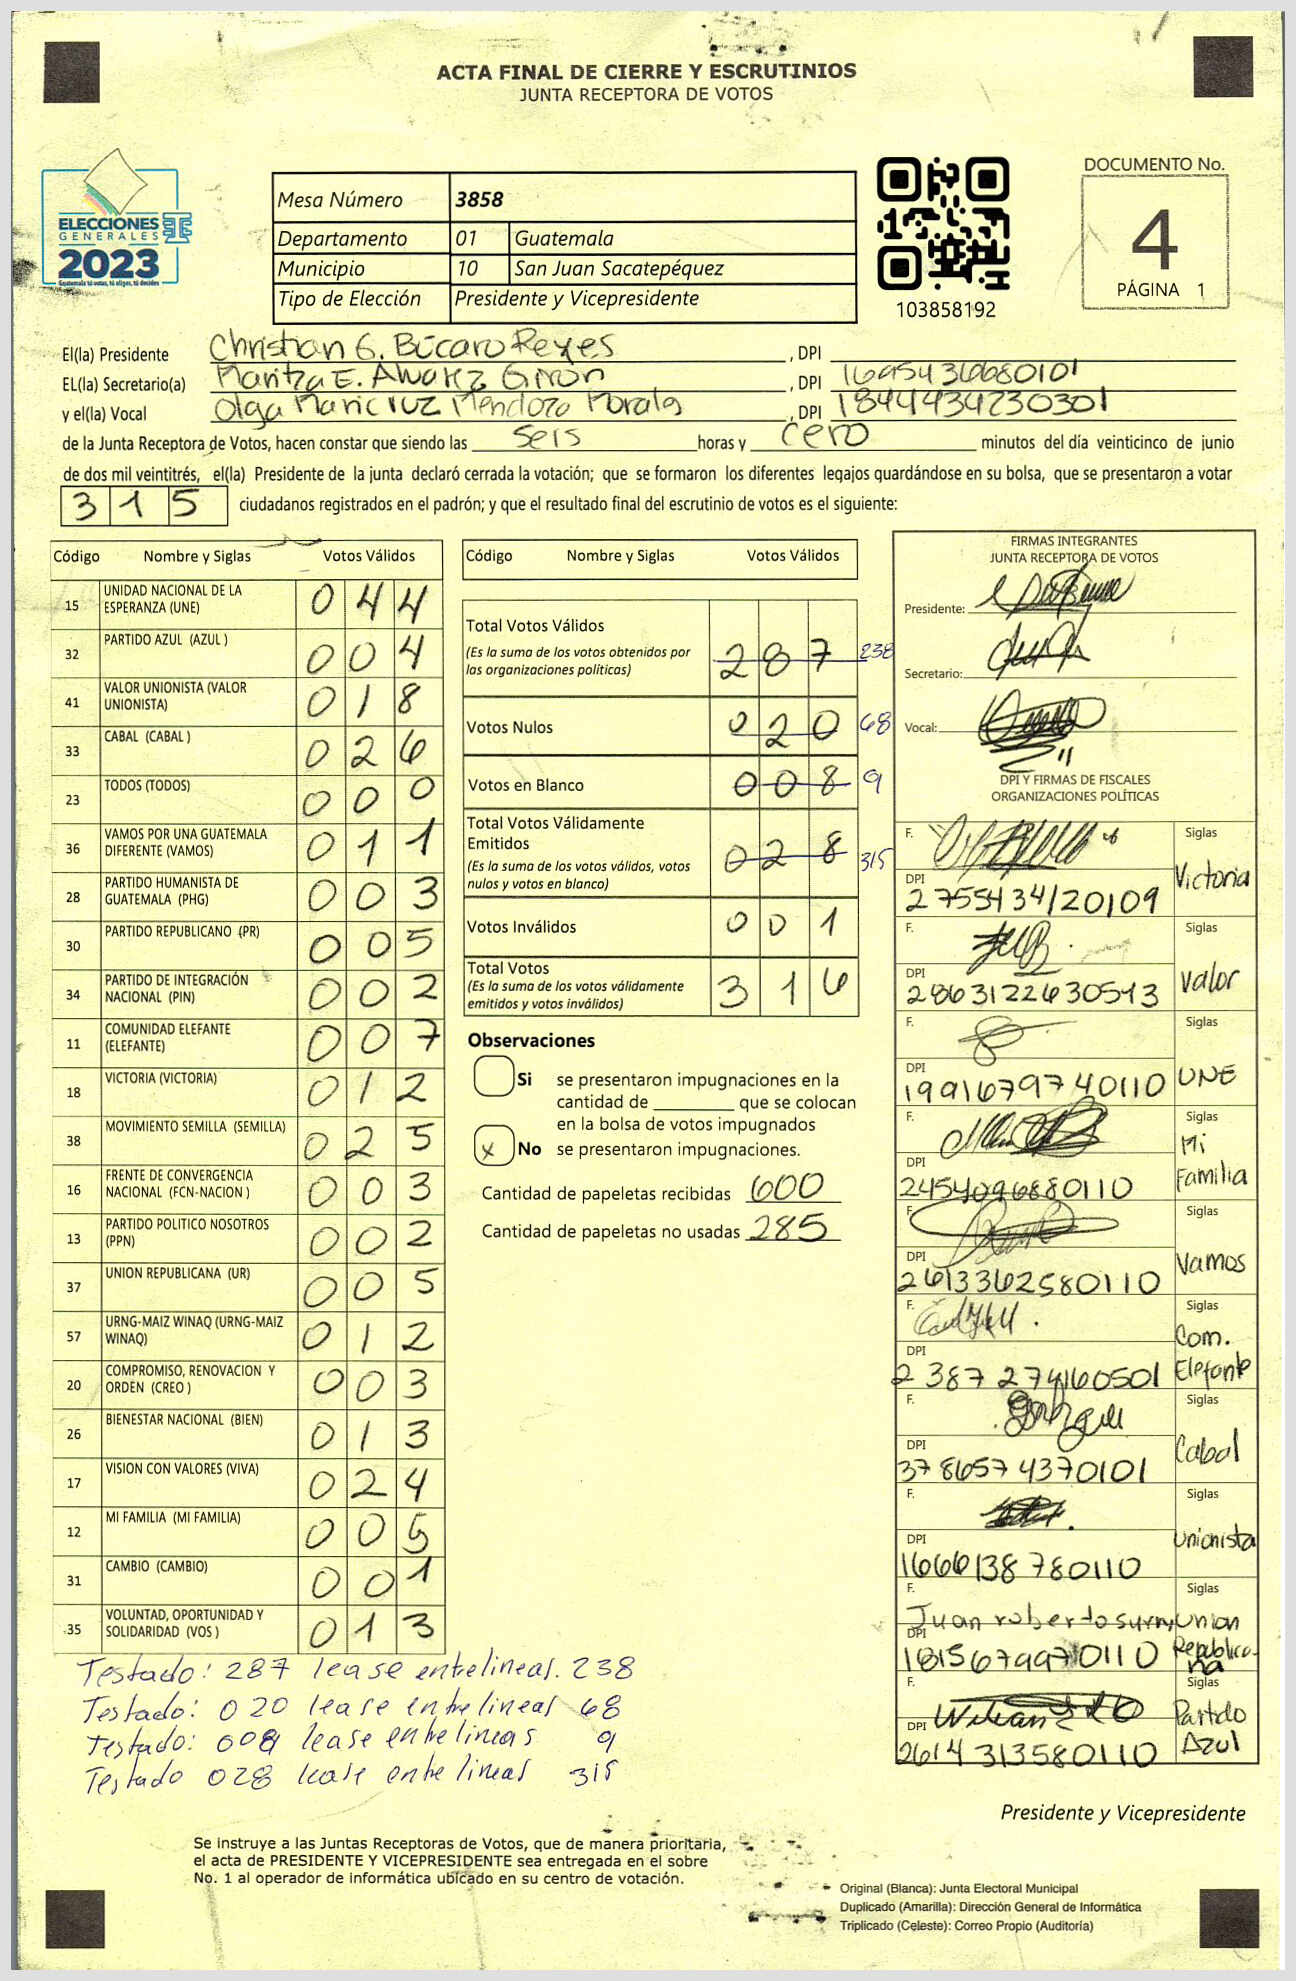 ACTA FINAL DE CIERRE Y ESCRUTINIOS
JUNTA RECEPTORA DE VOTOS
ELECCIONES
GENERALES
2023
Guatemala tú votas, tú eliges, tú decides
Mesa Número 3858
Departamento 01 Guatemala
Municipio 10 San Juan Sacatepéquez
Tipo de Elección Presidente y Vicepresidente
103858192
DOCUMENTO No.
4
PÁGINA 1
El(la) Presidente Christian G. Búcaro Reyes , DPI
EL(la) Secretario(a) Maritza E. Alvarez Girón , DPI 1695436680101
y el(la) Vocal Olga Maricruz Mendoza Morales , DPI 1844434230301
de la Junta Receptora de Votos, hacen constar que siendo las seis horas y cero minutos del día veinticinco de junio
de dos mil veintitrés, el(la) Presidente de la junta declaró cerrada la votación; que se formaron los diferentes legajos guardándose en su bolsa, que se presentaron a votar
315 ciudadanos registrados en el padrón; y que el resultado final del escrutinio de votos es el siguiente:
Código Nombre y Siglas Votos Válidos
15 UNIDAD NACIONAL DE LA ESPERANZA (UNE) 044
32 PARTIDO AZUL (AZUL ) 004
41 VALOR UNIONISTA (VALOR UNIONISTA) 018
33 CABAL (CABAL ) 026
23 TODOS (TODOS) 000
36 VAMOS POR UNA GUATEMALA DIFERENTE (VAMOS) 011
28 PARTIDO HUMANISTA DE GUATEMALA (PHG) 003
30 PARTIDO REPUBLICANO (PR) 005
34 PARTIDO DE INTEGRACIÓN NACIONAL (PIN) 002
11 COMUNIDAD ELEFANTE (ELEFANTE) 007
18 VICTORIA (VICTORIA) 012
38 MOVIMIENTO SEMILLA (SEMILLA) 025
16 FRENTE DE CONVERGENCIA NACIONAL (FCN-NACION ) 003
13 PARTIDO POLITICO NOSOTROS (PPN) 002
37 UNION REPUBLICANA (UR) 005
57 URNG-MAIZ WINAQ (URNG-MAIZ WINAQ) 012
20 COMPROMISO, RENOVACION Y ORDEN (CREO ) 003
26 BIENESTAR NACIONAL (BIEN) 013
17 VISION CON VALORES (VIVA) 024
12 MI FAMILIA (MI FAMILIA) 005
31 CAMBIO (CAMBIO) 001
35 VOLUNTAD, OPORTUNIDAD Y SOLIDARIDAD (VOS ) 013
Testado: 287 lease entrelineas. 238
Testado: 020 lease entrelineas 68
Testado: 008 lease entrelineas 9
Testado 028 lease entre lineas 315
Código Nombre y Siglas Votos Válidos
Total Votos Válidos 287 238
(Es la suma de los votos obtenidos por
las organizaciones politicas)
Votos Nulos 020 68
Votos en Blanco 008 9
Total Votos Válidamente
Emitidos 028 315
(Es la suma de los votos válidos, votos
nulos y votos en blanco)
Votos Inválidos 001
Total Votos 316
(Es la suma de los votos válidamente
emitidos y votos inválidos)
Observaciones
Si se presentaron impugnaciones en la
cantidad de ________ que se colocan
en la bolsa de votos impugnados
x No se presentaron impugnaciones.
Cantidad de papeletas recibidas 600
Cantidad de papeletas no usadas 285
FIRMAS INTEGRANTES
JUNTA RECEPTORA DE VOTOS
Presidente:
Secretario:
Vocal:
DPI Y FIRMAS DE FISCALES
ORGANIZACIONES POLÍTICAS
F. Siglas Victoria
DPI 2755434120109
F. Siglas Valor
DPI 2863122630513
F. Siglas UNE
DPI 1991679740110
F. Siglas Mi Familia
DPI 2454096880110
F. Siglas Vamos
DPI 2613362580110
F. Siglas Com. Elefante
DPI 2387274160501
F. Siglas Cabal
DPI 3786574370101
F. Siglas Unionista
DPI 1666138780110
F. Juan roberto Siglas Union Republicana
DPI 1815679970110
F. Siglas Partido Azul
DPI 2614313580110
Presidente y Vicepresidente
Se instruye a las Juntas Receptoras de Votos, que de manera prioritaria,
el acta de PRESIDENTE Y VICEPRESIDENTE sea entregada en el sobre
No. 1 al operador de informática ubicado en su centro de votación.
Original (Blanca): Junta Electoral Municipal
Duplicado (Amarilla): Dirección General de Informática
Triplicado (Celeste): Correo Propio (Auditoría)